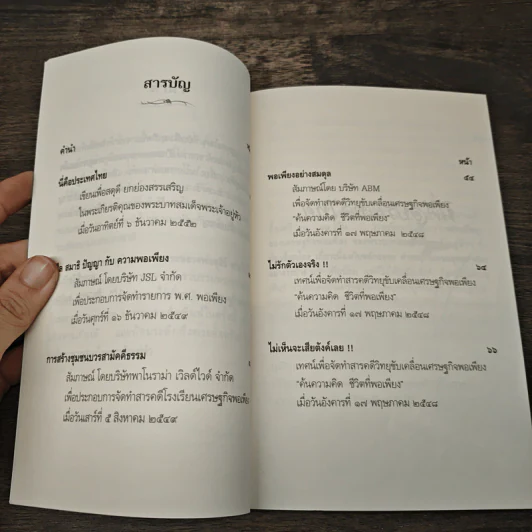 สารบัญ
คำนำ
นี่คือประเทศไทย
เขียนเพื่อสดุดี ยกย่องสรรเสริญ
ในพระเกียรติคุณของพระบาทสมเด็จพระเจ้าอยู่หัว
เมื่อวันอาทิตย์ที่ ๖ ธันวาคม ๒๕๕๒
สมาธิ ปัญญา กับ ความพอเพียง
สัมภาษณ์ โดยบริษัท JSL จำกัด
เพื่อประกอบการจัดทำรายการ พ.ศ. พอเพียง
เมื่อวันศุกร์ที่ ๑๖ ธันวาคม ๒๕๔๙
การสร้างชุมชนบวรสามัคคีธรรม
สัมภาษณ์ โดยบริษัทพาโนราม่า เวิลด์ไวด์ จำกัด
เพื่อประกอบการจัดทำสารคดีโรงเรียนเศรษฐกิจพอเพียง
เมื่อวันเสาร์ที่ ๕ สิงหาคม ๒๕๔๙
หน้า
พอเพียงอย่างสมดุล ๕๔
สัมภาษณ์โดย บริษัท ABM
เพื่อจัดทำสารคดีวิทยุขับเคลื่อนเศรษฐกิจพอเพียง
"ต้นความคิด ชีวิตที่พอเพียง"
เมื่อวันอังคารที่ ๑๗ พฤษภาคม ๒๕๔๘
ไม่รักตัวเองจริง !! ๖๔
เทศน์เพื่อจัดทำสารคดีวิทยุขับเคลื่อนเศรษฐกิจพอเพียง
"ต้นความคิด ชีวิตที่พอเพียง"
เมื่อวันอังคารที่ ๑๗ พฤษภาคม ๒๕๔๘
ไม่เห็นจะเสียตังค์เลย !! ๖๖
เทศน์เพื่อจัดทำสารคดีวิทยุขับเคลื่อนเศรษฐกิจพอเพียง
"ต้นความคิด ชีวิตที่พอเพียง"
เมื่อวันอังคารที่ ๑๗ พฤษภาคม ๒๕๔๘